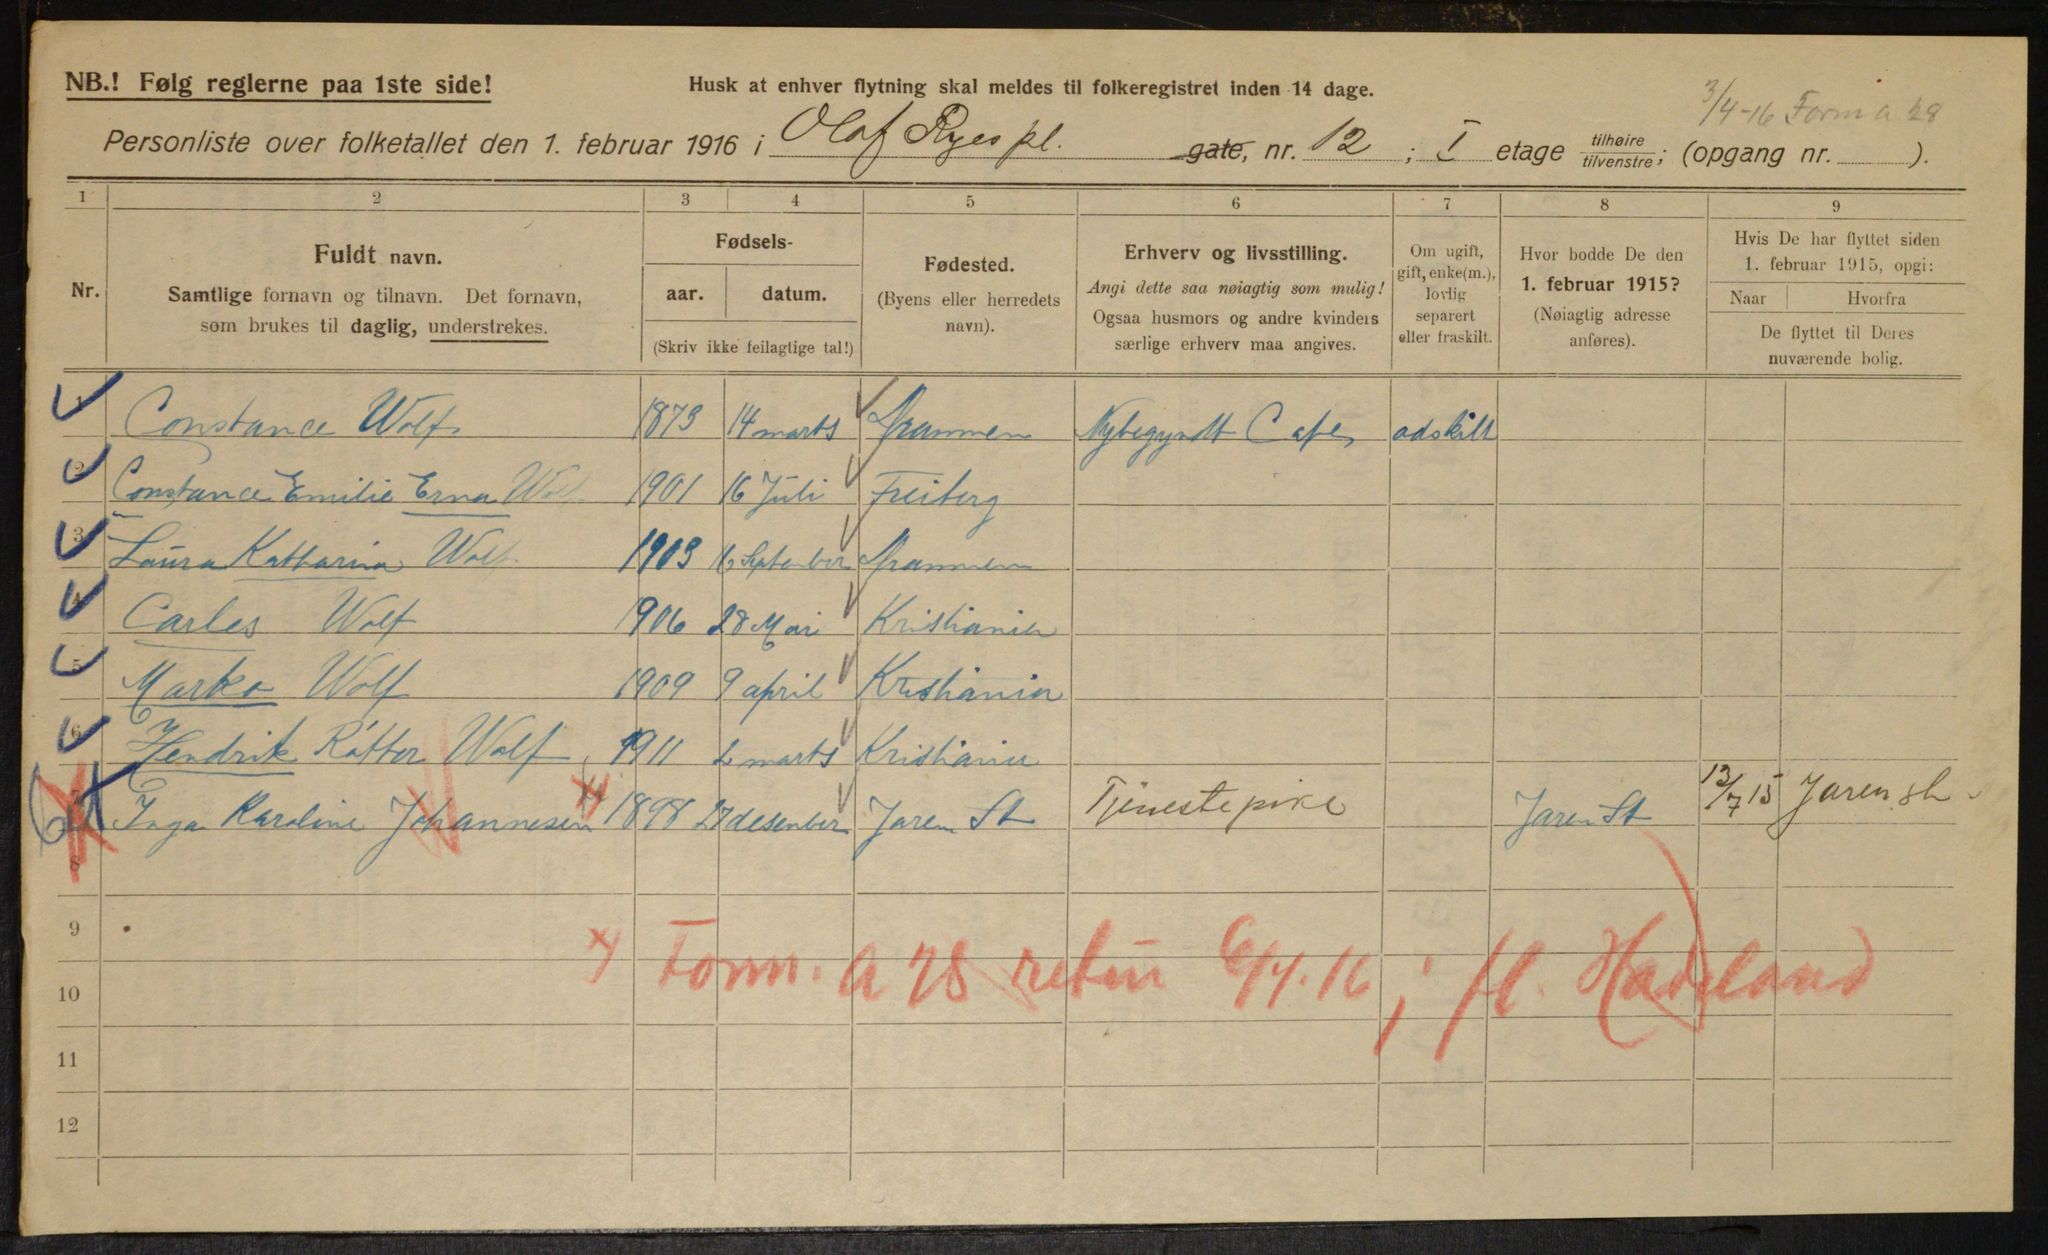 NB.! Følg reglerne paa 1ste side!
Husk at enhver flytning skal meldes til folkeregistret inden 14 dage.
3/4-16 Form a 28
Personliste over folketallet den 1. februar 1916 i Olaf Ryes pl. gate, nr. 12 ; I etage tilhøire tilvenstre; (opgang nr. ).
1 2 3 4 5 6 7 8 9
Nr.
Fuldt navn.
Samtlige fornavn og tilnavn. Det fornavn,
som brukes til daglig, understrekes.
Fødsels-
aar. datum.
(Skriv ikke feilagtige tal!)
Fødested.
(Byens eller herredets
navn).
Erhverv og livsstilling.
Angi dette saa nøiagtig som mulig!
Ogsaa husmors og andre kvinders
særlige erhverv maa angives.
Om ugift,
gift, enke(m.),
lovlig
separert
eller fraskilt.
Hvor bodde De den
1. februar 1915?
(Nøiagtig adresse
anføres).
Hvis De har flyttet siden
1. februar 1915, opgi:
Naar Hvorfra
De flyttet til Deres
nuværende bolig.
1 Constance Wolf 1873 14 marts Drammen Nybegyndt Cafe adskilt
2 Constance Emilie Erna Wolf 1901 16 Juli Freiberg
3 Laura Katharina Wolf 1903 16 September Drammen
4 Carles Wolf 1906 28 Mai Kristiania
5 Marko Wolf 1909 9 april Kristiania
6 Hendrik Rötter Wolf 1911 2 marts Kristiania
7 Inga Karoline Johannesen 1898 27 desember Jaren St Tjenestepike Jaren St 13/7 15 Jaren st.
8
9
x) Form. a 28 retur 6/4.16; fl. Hadeland
10
11
12